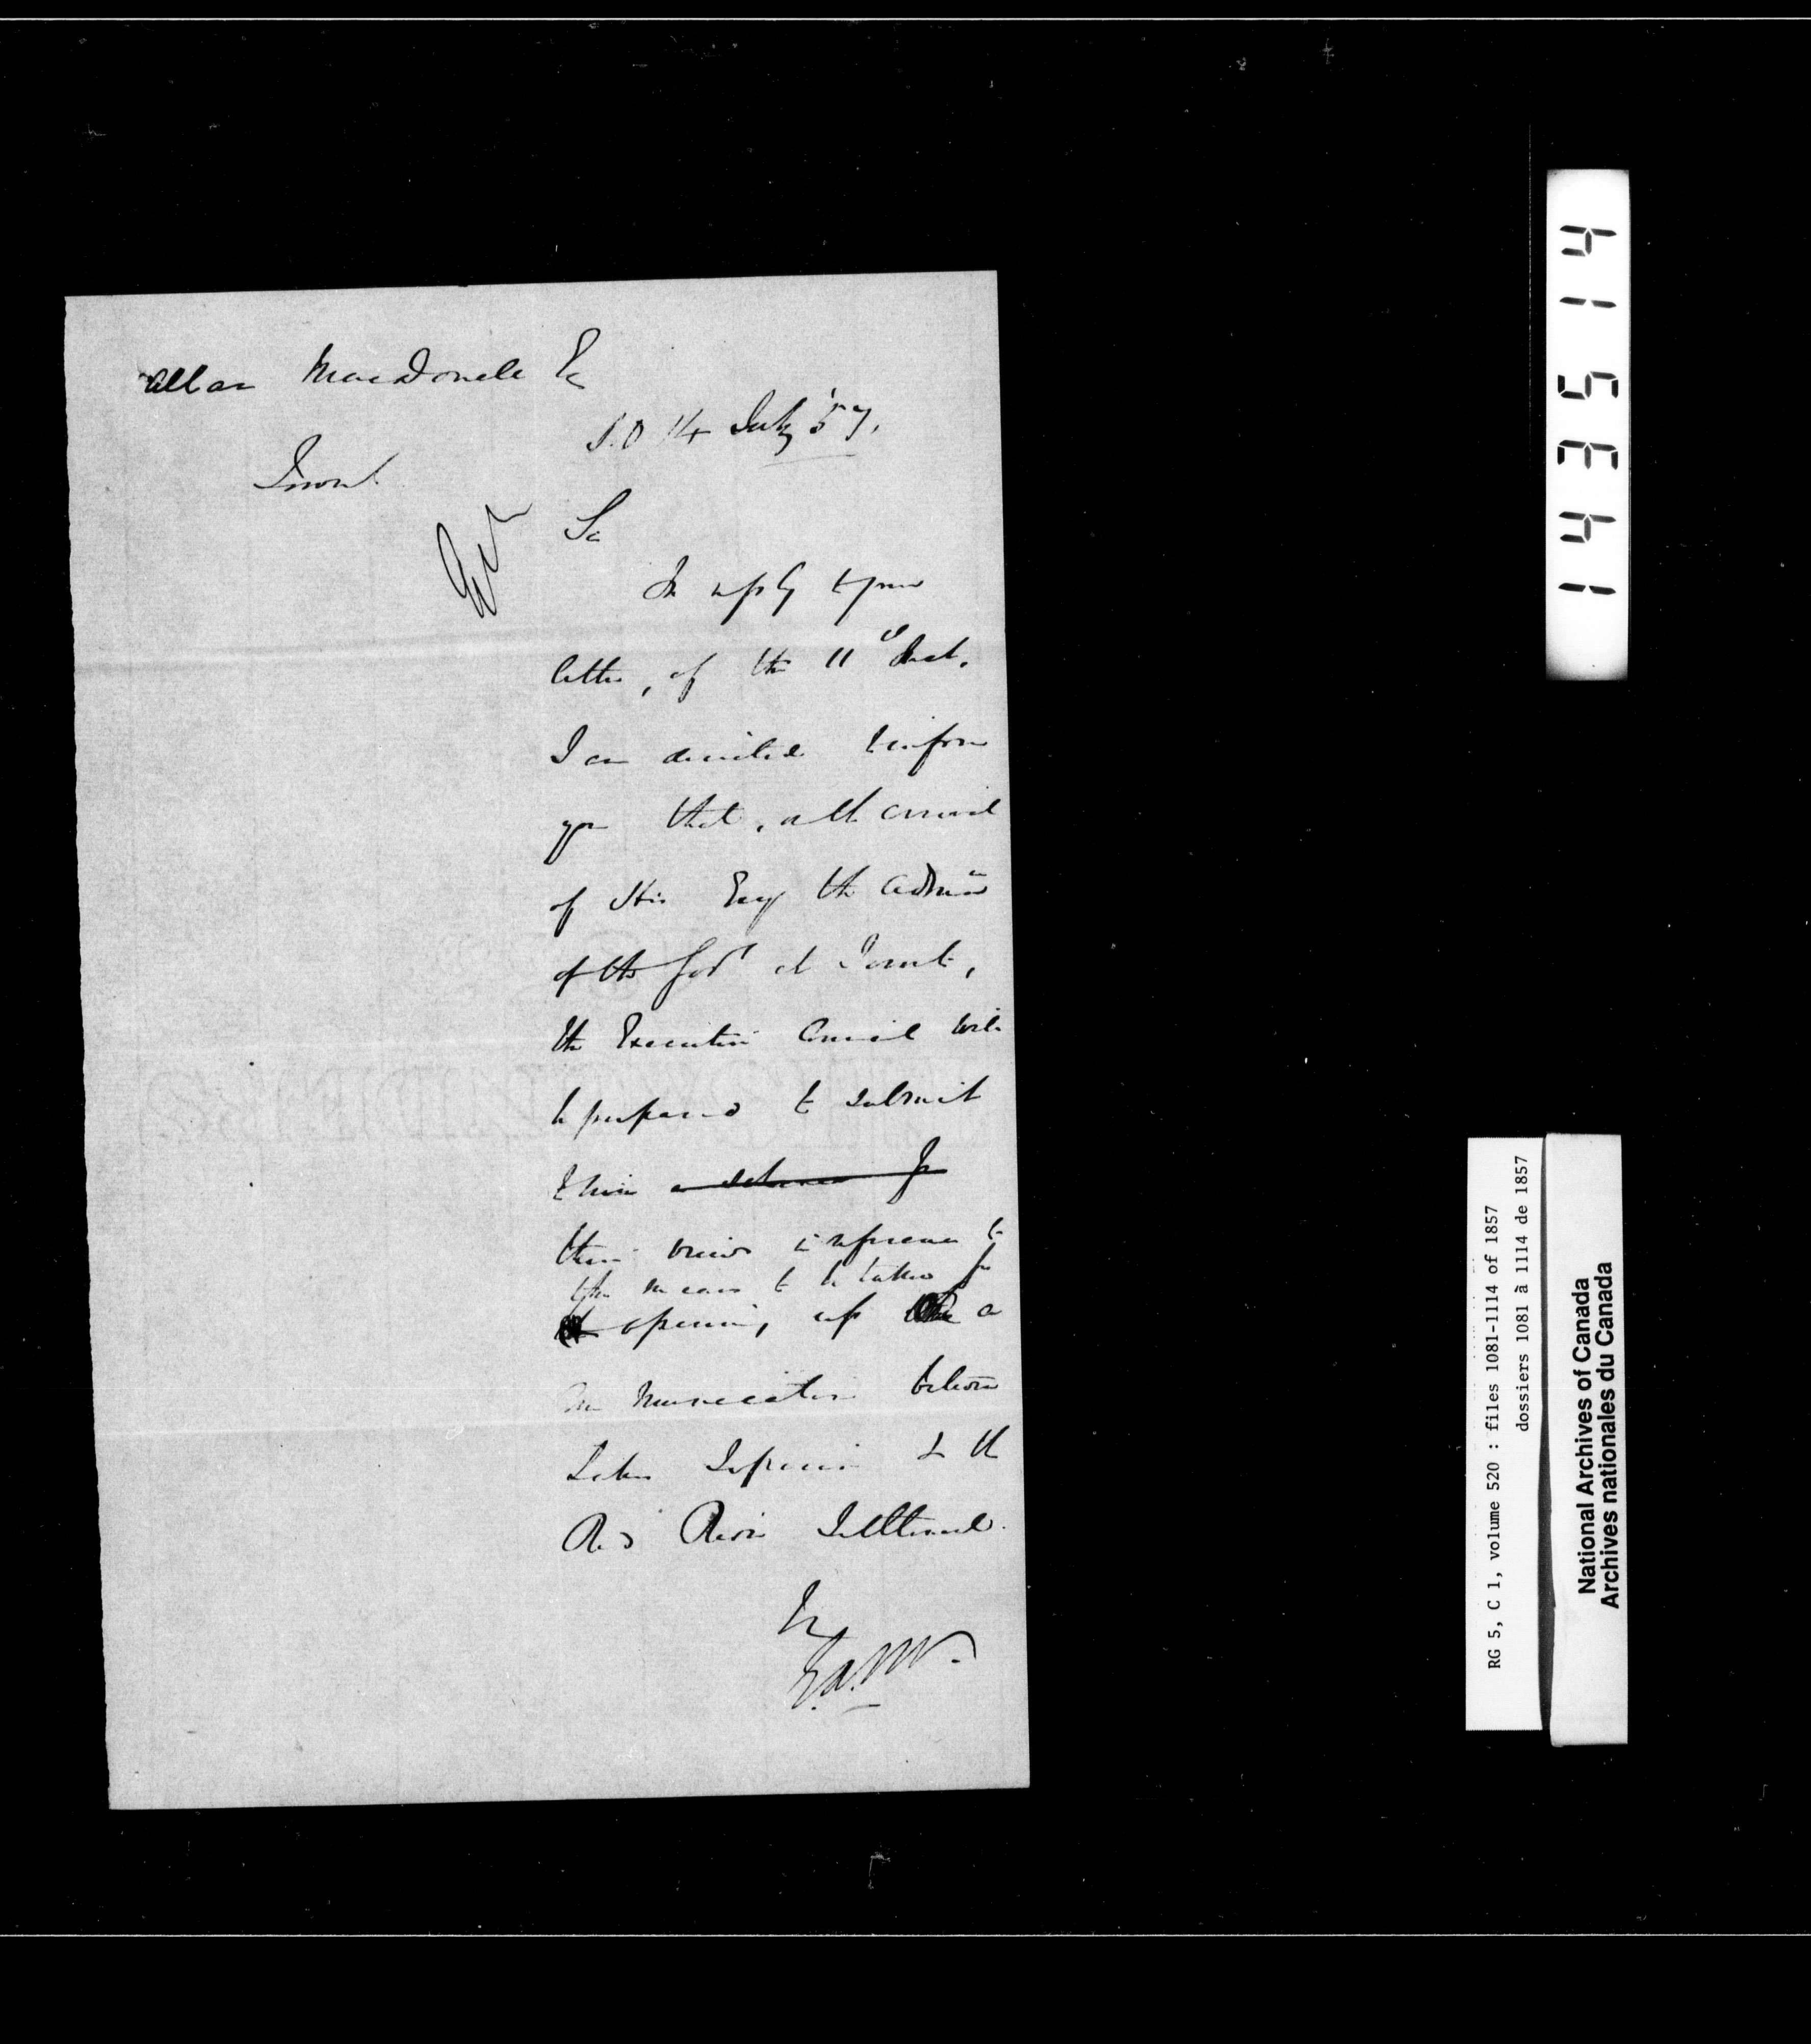 Allan Macdonell Esq
S.O 14 July '57.
Toronto
Sir
In reply to your
letter, of the 11th Inst.
I am directed to inform
you that, on the arrival
of His Excy the Admr
of the Govt at Toronto,
the Executive Council will
be prepared to submit
to him a scheme for
their views in reference to
the means to be taken for
opening up a
Communication between
Lake Superior & the
Red River Settlement.
E.A.M.
1 4 3 5 1 4
RG 5, C 1, volume 520 : files 1081-1114 of 1857
dossiers 1081 à 1114 de 1857
National Archives of Canada
Archives nationales du Canada